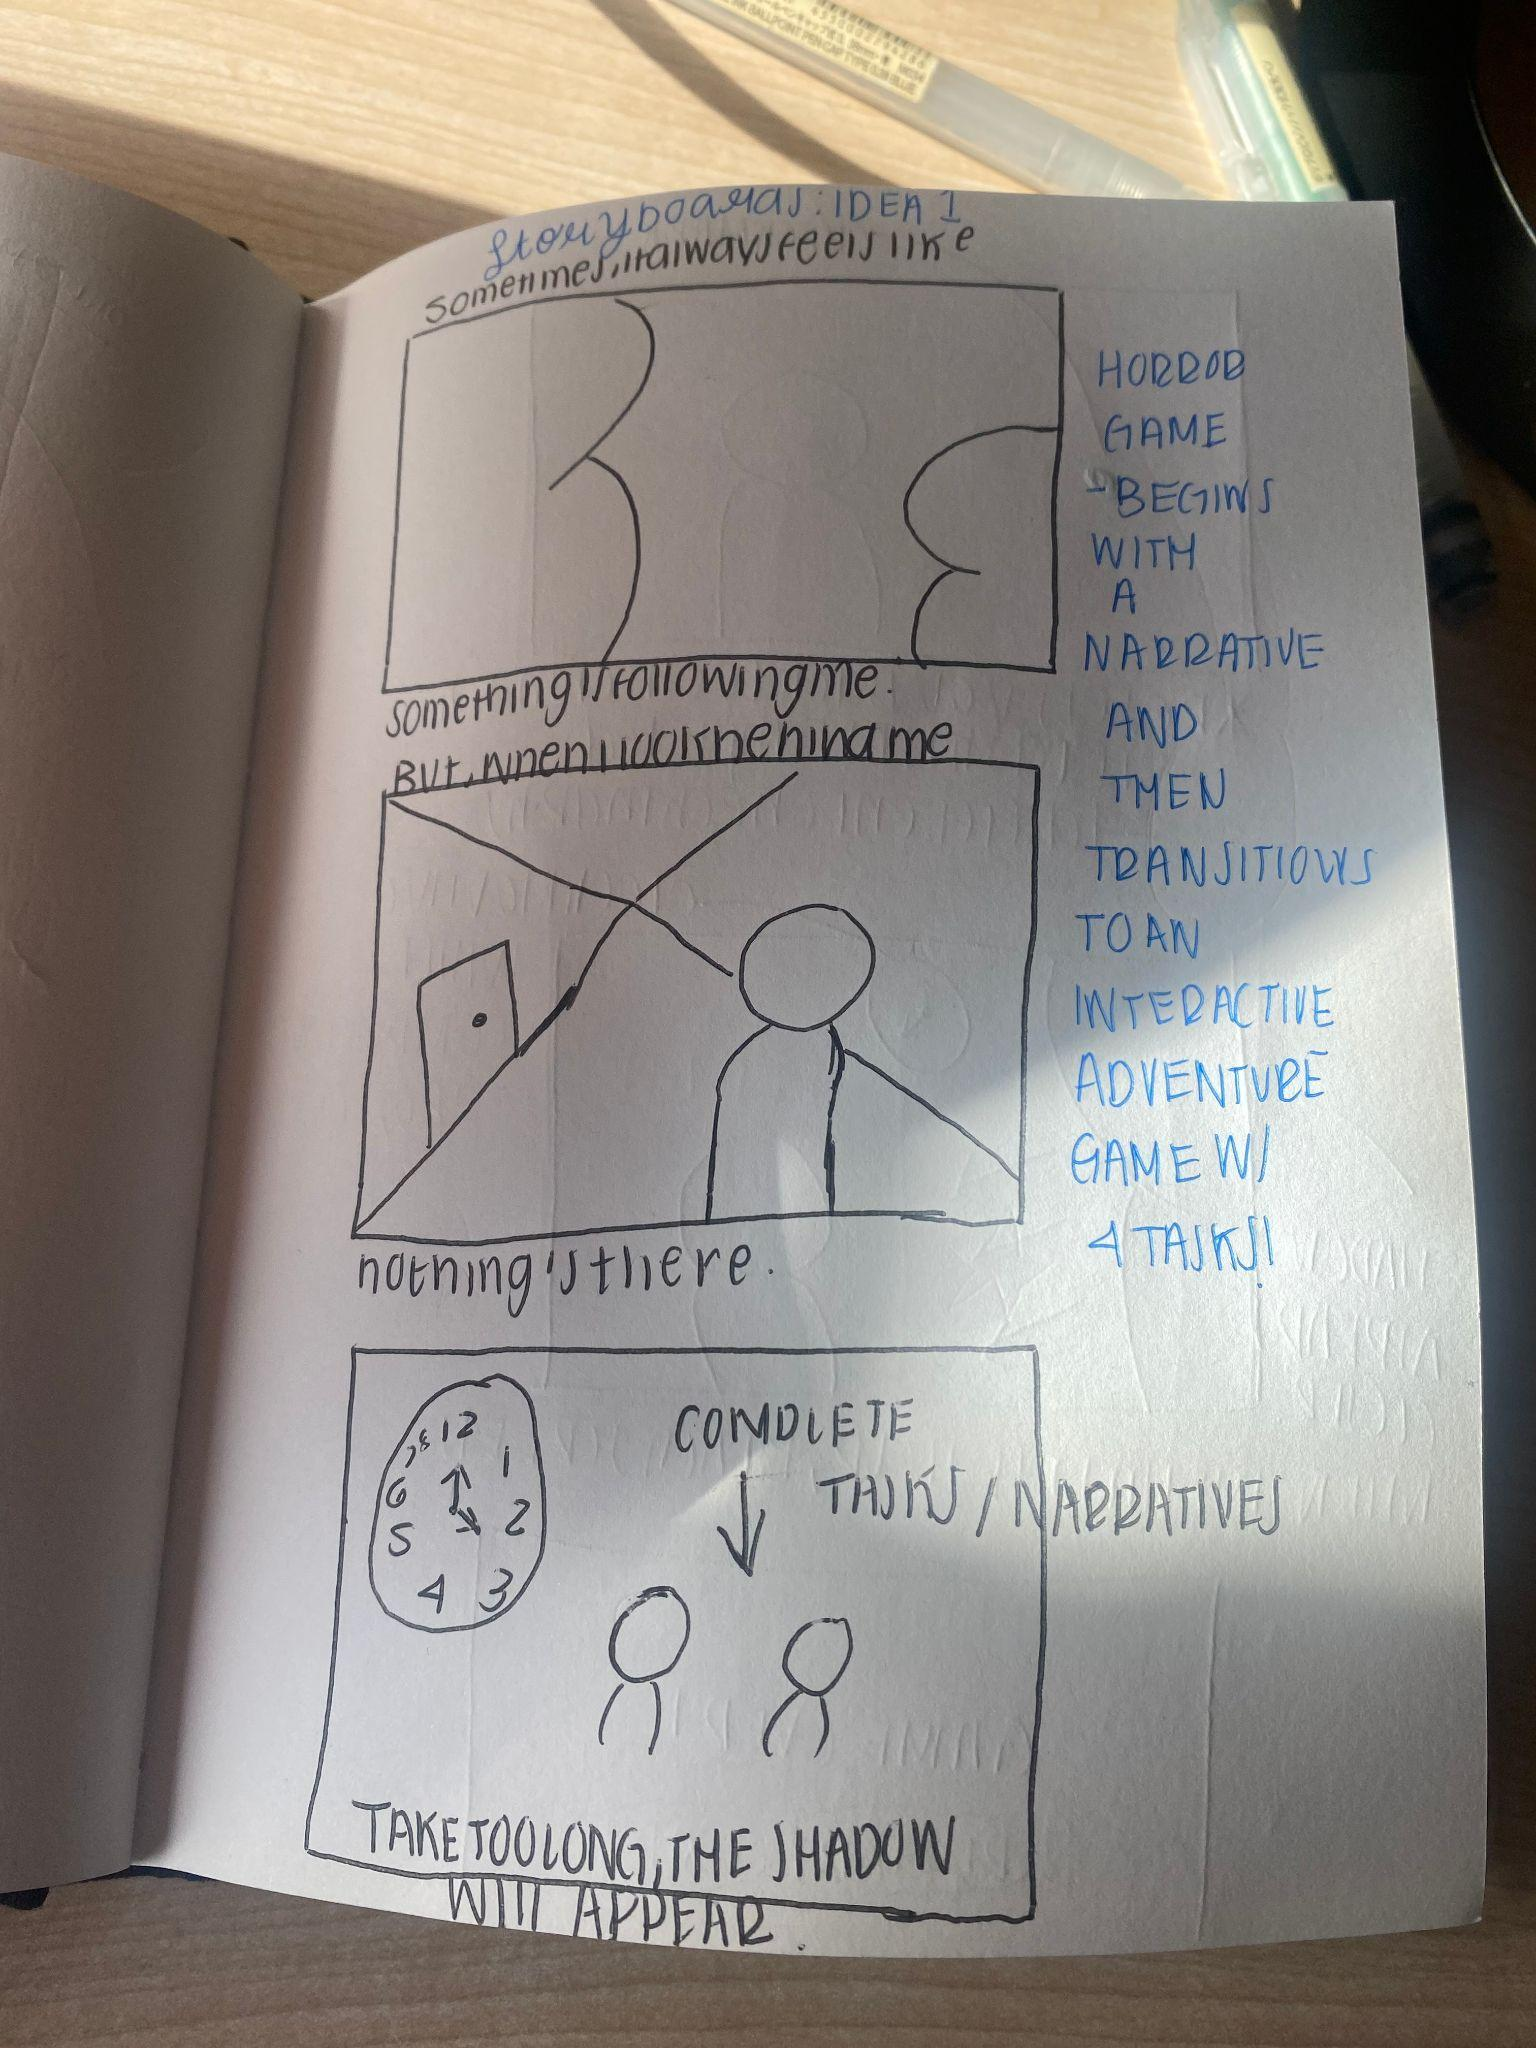 BALLPOINT PEN CAP TYPE 0.38 BLUE
Storyboards: IDEA 1
Sometimes, it always feels like
something is following me.
But, when I look behind me
nothing's there.
HORROR
GAME
-BEGINS
WITH
A
NARRATIVE
AND
THEN
TRANSITIONS
TO AN
INTERACTIVE
ADVENTURE
GAME W/
4 TASKS!
12
1
2
3
4
5
6
7
8
COMPLETE
TASKS / NARRATIVES
TAKE TOO LONG, THE SHADOW
WILL APPEAR.